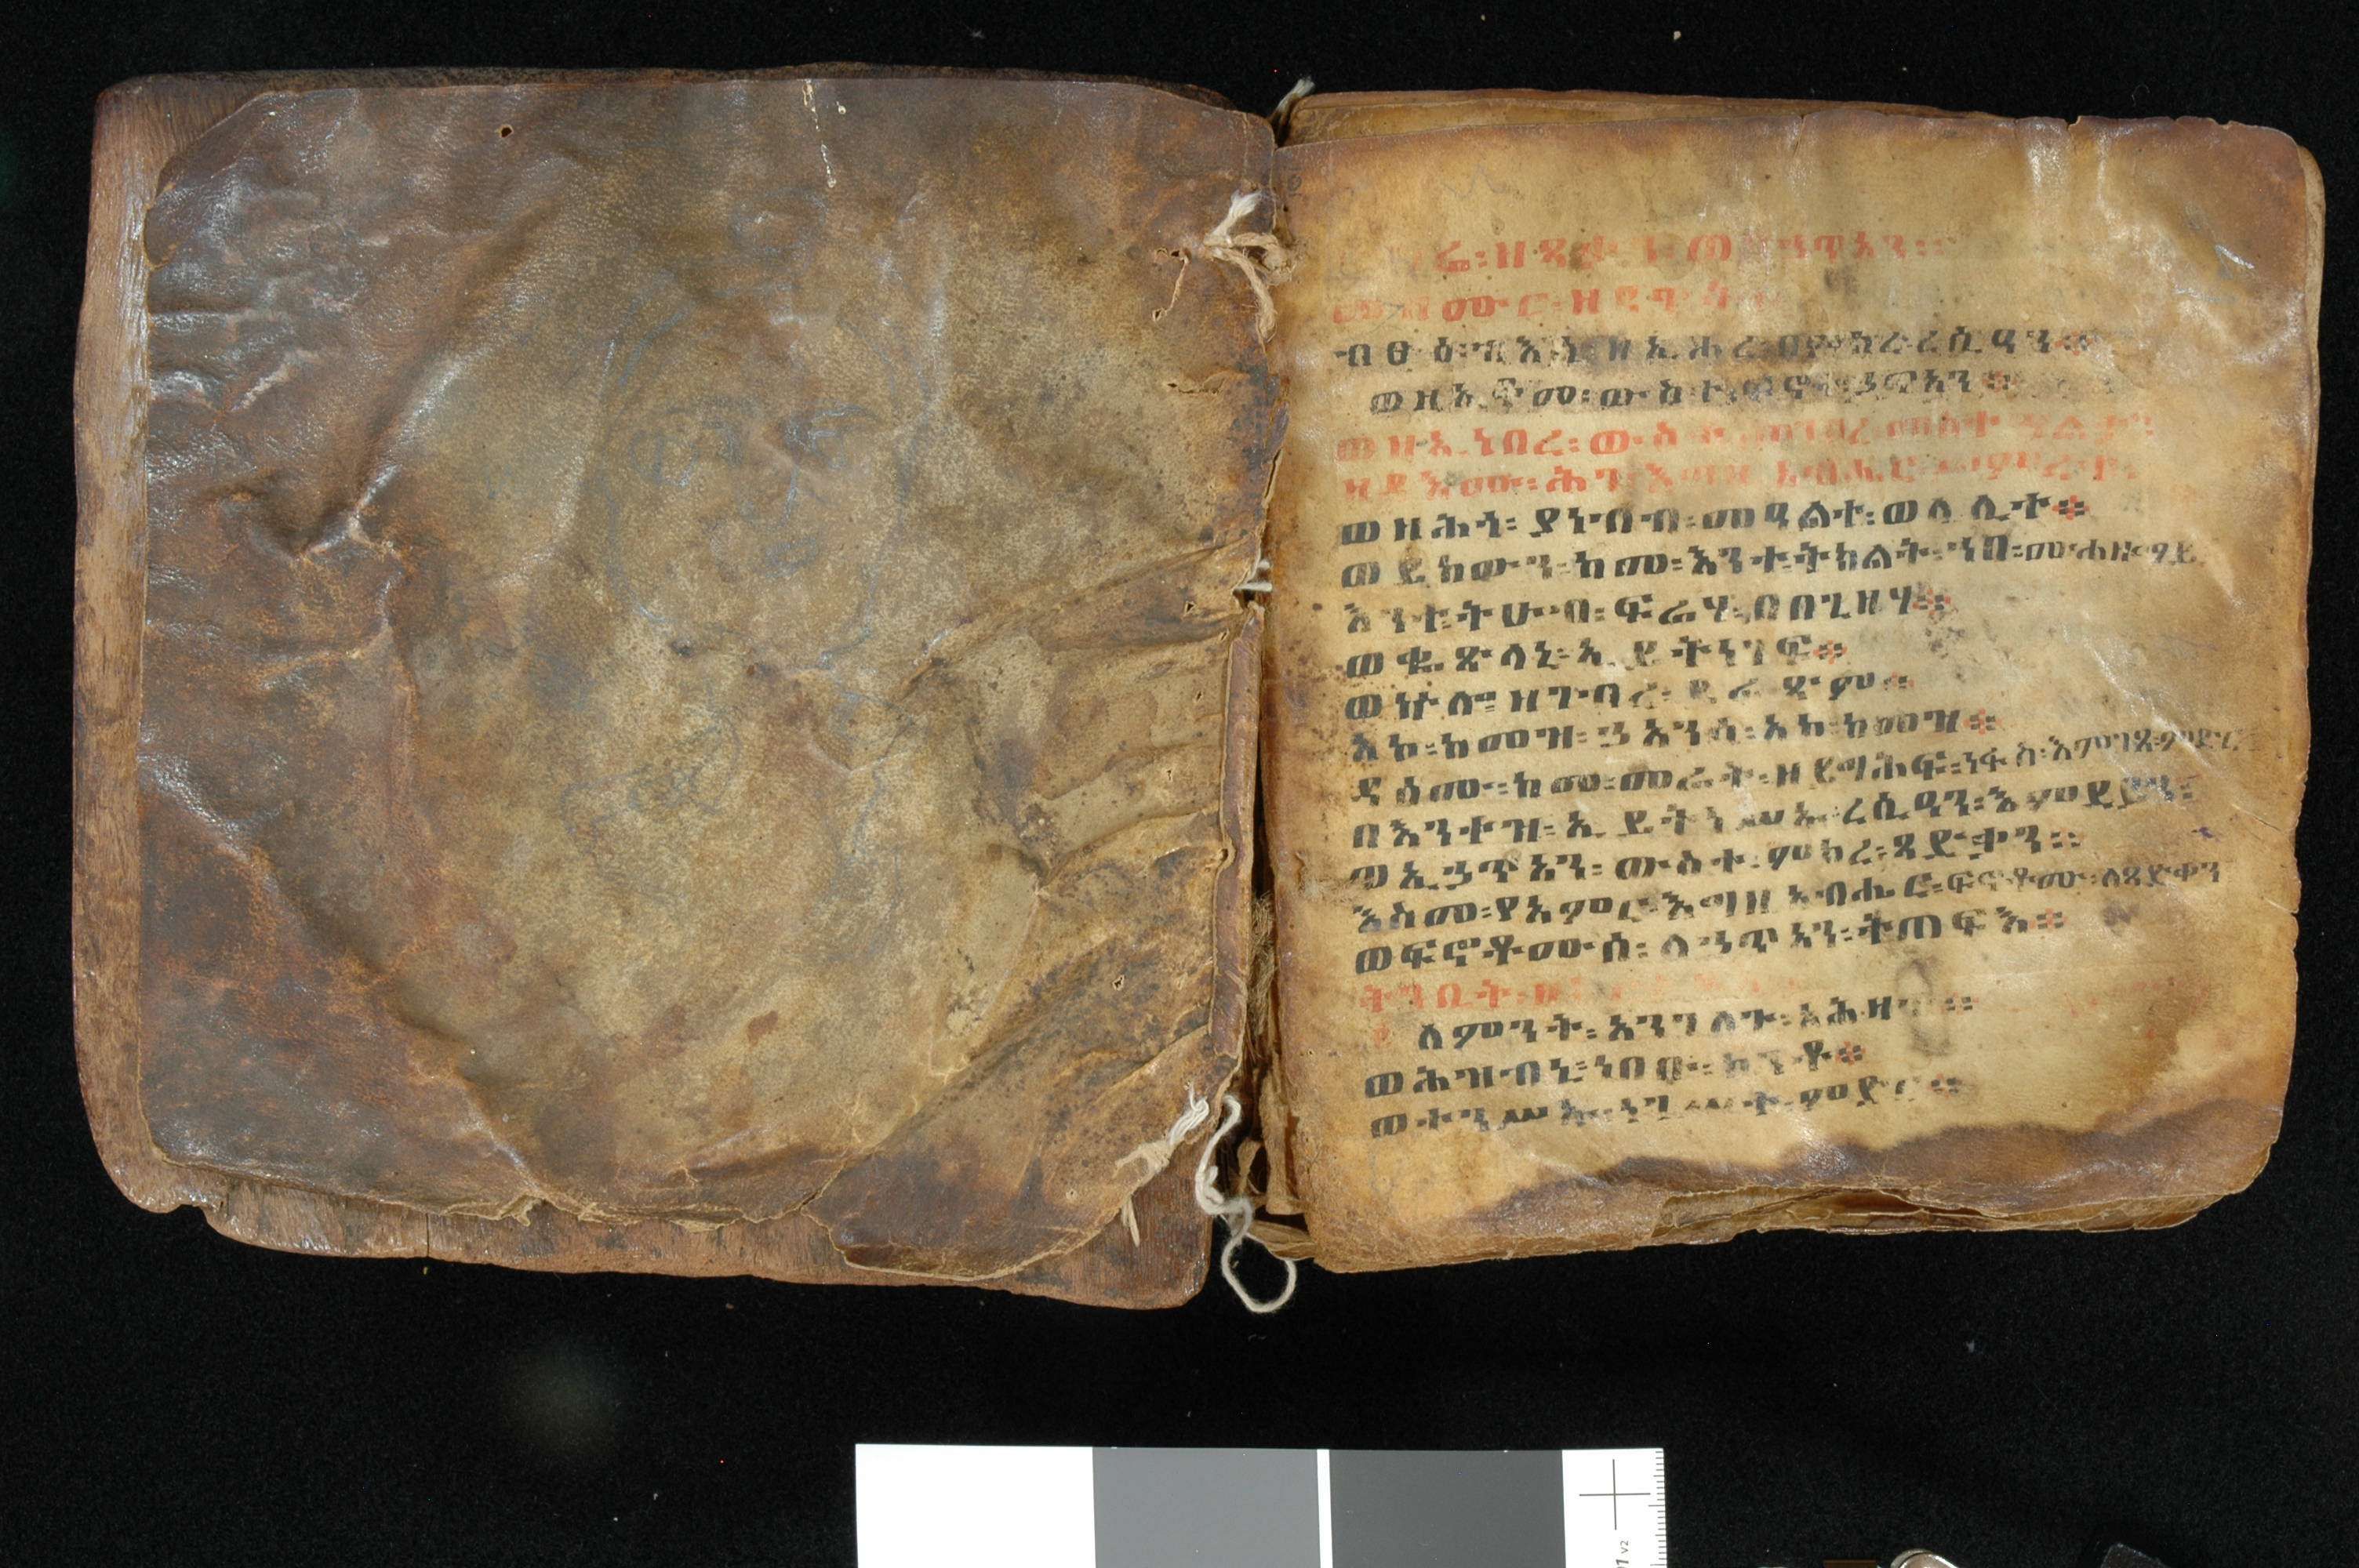 ፍሬ፡ ዘጻድቃን፡ ወዘኃጥኣን።
መዝሙር፡ ዘዳዊት።
ብፁዕ፡ ብእሲ፡ ዘኢሖረ፡ በምክረ፡ ረሲዓን።
ወዘኢቆመ፡ ውስተ፡ ፍኖተ፡ ኃጥኣን።
ወዘኢነበረ፡ ውስተ፡ መንበረ፡ መስተሳልቃን።
ዘዳእሙ፡ ሕገ፡ እግዚአብሔር፡ ሥምረቱ።
ወዘሕጎ፡ ያነብብ፡ መዓልተ፡ ወሌሊተ።
ወይከውን፡ ከመ፡ እንተ፡ ትክልት፡ ኀበ፡ ሙሐዘ፡ ማይ
እንተ፡ ትሁብ፡ ፍሬሃ፡ በበጊዜሃ።
ወቈጽላኒ፡ ኢይትነገፍ።
ወኵሎ፡ ዘገብረ፡ ይፌጽም።
አኮ፡ ከመዝ፡ ኃጥኣንሰ፡ አኮ፡ ከመዝ።
ዳእሙ፡ ከመ፡ መሬት፡ ዘይግሕፍ፡ ነፋስ፡ እምገጸ፡ ምድር
በእንተዝ፡ ኢይትነሥኡ፡ ረሲዓን፡ እምደይን፡
ወኢኃጥኣን፡ ውስተ፡ ምክረ፡ ጻድቃን።
እስመ፡ ያአምር፡ እግዚአብሔር፡ ፍኖቶሙ፡ ለጻድቃን
ወፍኖቶሙሰ፡ ለኃጥኣን፡ ትጠፍእ።
ትንቢት፡
ለምንት፡ አንገለጉ፡ አሕዛብ።
ወሕዝብኒ፡ ነበቡ፡ ከንቶ።
ወተንሥኡ፡ ነገሥተ፡ ምድር።